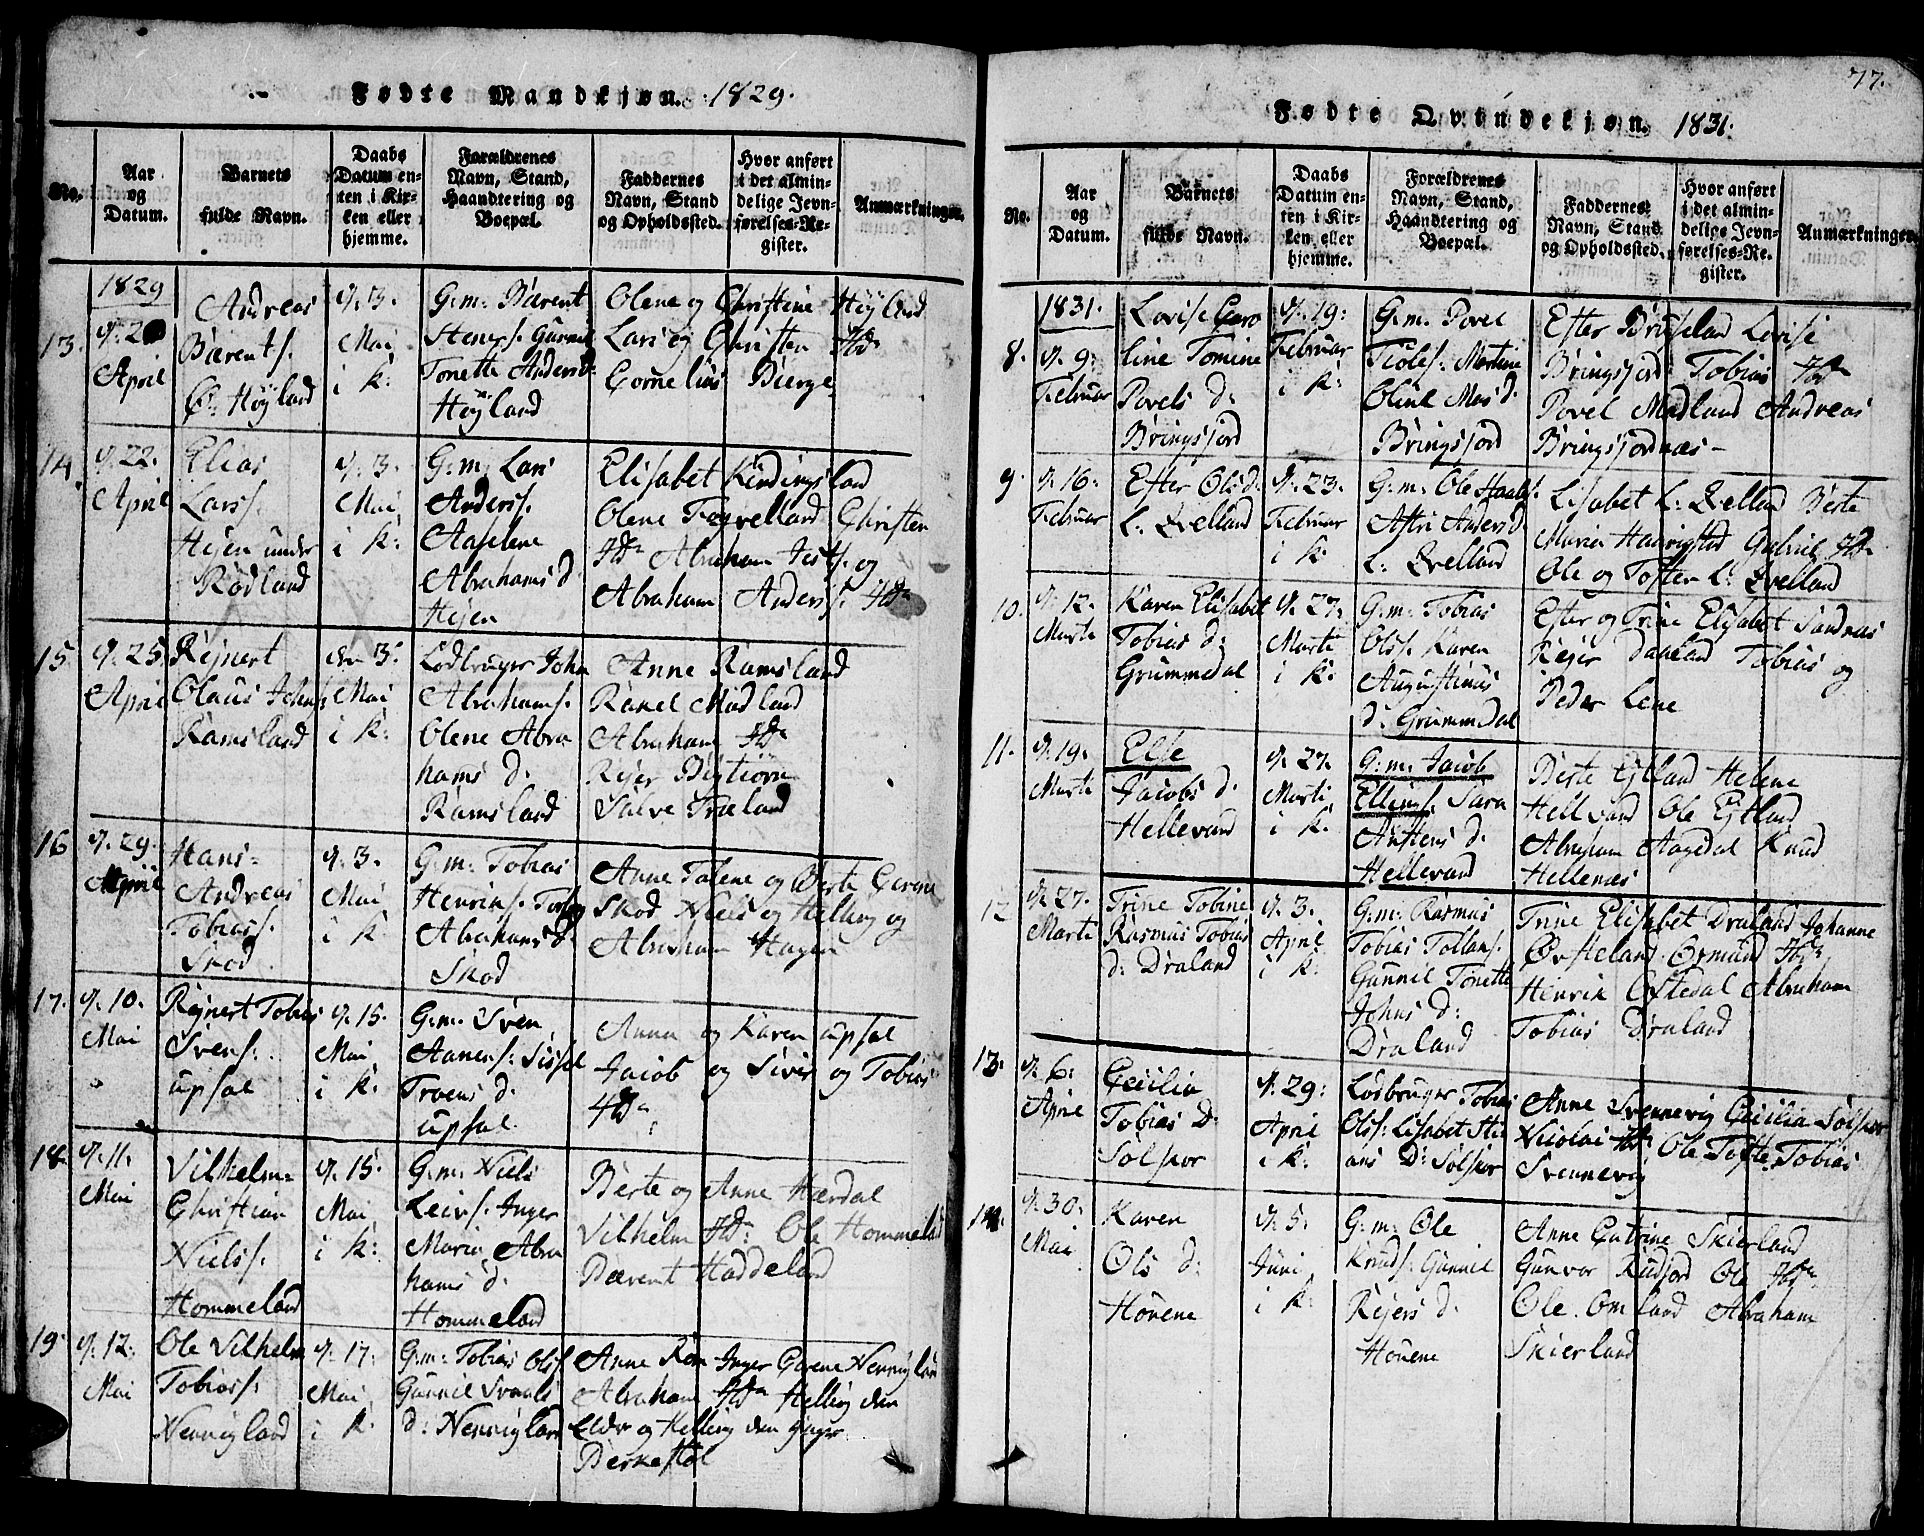 Fødte Mandkjøn. 1829.
No.
Aar
og
Datum.
Barnets
fulde Navn.
Daabs
Datum en-
ten i Kir-
ken eller
hjemme.
Forældrenes
Navn, Stand,
Haandtering og
Boepæl.
Faddernes
Navn, Stand
og Opholdssted.
Hvor anført
i det almin-
delige Jevn-
førelses-Re-
gister.
Anmærkninger.
1829
13.
April
Andreas
Bærents.
Ø: Høyland
d. 3.
Mai
i K:
G: m: Bærent
Tonette Anders d:
Høyland
Olene og Christine Høyland
Lars og Christen Ibd
Cornelius Bierge
14.
d. 22.
April
Elias
Larss.
Hejen under
Rødland
d. 3.
Mai
i K:
G: m: Lars
Anderss.
Abrahams d.
Hejen
Elisabet Kindingsland
Olene Christen
Ibd Abraham og
Abraham Anderss. Ibd
15.
d. 25
April
Rejnert
Olaus Johns
Ramsland
den 3.
Mai
i K:
Lodbruger John
Abrahams.
Olene Abra
hams d.
Ramsland
Anne Ramsland
Rakel Midland
Abraham Ibd
Rejer Bistiørn
Salve Træland
16
d. 29.
April
Hans
Andreas
Tobiass.
Skod.
d. 3.
Mai
i K
G: m: Tobias
Henriks.
Abrahams d.
Skod
Anne Talene og Berte Gurine
Skod Niels og Helling og
Abraham Hagen
17.
d. 10.
Mai
Rejnert Tobias
Svens:
upsal
d. 15.
Mai
i K:
G: m: Sven
Aanens: Sissel
Troens d.
upsal.
Anna og Karen upsal
Jacob og Sivir og Tobias
Ibd
18
d. 11.
Mai
Vilhelm
Christian
Nielss.
Hommeland
d. 15.
Mai
i K:
G: m: Niels
Leivs. Inger
Maria Abra
hams d.
Hommeland
Berte og Anne Hærdal
Vilhelm Ibd: Ole Hommeland
Bærent Haddeland
19.
d. 12.
Mai
Ole Vilhelm
Tobiass.
Nenningland
d. 17.
Mai
i K.
G: m: Tobias Olss
Gunnil
d:
Anne Inger
Abraham Ibd Helling den
Eldr og Helling den yngr
77.
Fødte Qvindekjøn. 1831.
No.
Aar
og
Datum.
Barnets
fulde Navn.
Daabs
Datum en-
ten i Kir-
ken eller
hjemme.
Forældrenes
Navn, Stand,
Haandtering og
Boepæl.
Faddernes
Navn, Stand
og Opholdssted.
Hvor anført
i det almin-
delige Jevn-
førelses-Re-
gister.
Anmærkninger.
1831.
8.
d. 9.
Februar
Lovise Caro
line Tomine
Povels d:
Bringsjord
d. 19:
Februar
i K:
G: m: Povel
Oline Mos d.
Bringsjord
Efter Briseland Lovise
Bringsjord Tobias Ibd
Povel Madland Andreas
Bringsjordnæs
9.
d. 16:
Februar
Efter Ols d.
L: Qvelland
d. 23.
Februar
i K.
G: m: Ole
Astri Anders d
L: Qvelland
Lisabet L: Qvelland Berte
Maria Gabriel Ibd
Ole og Tosten L: Qvelland
10.
d. 12.
Marti
Karen Elisabet
Tobias d:
Grummedal
d. 27.
Marti
i K.
G: m: Tobias
Olss. Karen
Augustinus
d. Grummedal
Efter og Trine Elisabet Sandnæs
Rejer Daaland Tobias og
Peder Lene
11.
d. 19.
Marti
Else
Jacobs d.
Hellevand
d. 27.
Marti
i K.
G: m: Jacob
Ellings. Sara
Austens d.
Hellevand
Berte Egeland Helene
Hellvand Ole
Abraham Aagedal Knud
Hellenæs
12
d. 27.
Marti
Trine Tobine
Rasmus Tobias
d: Draland
d. 3.
April
i K:
G: m: Rasmus
Tobias Tollaks.
Gunnil Tonette
Johns d:
Draland
Trine Elisabet Draland Johanne
Øvsteland Osmund Ibd
Henrik Oftedal Abraham
Tobias Draland
13.
d. 6.
April
Cecilia
Tobias D.
Solskor
d. 29:
April
i K:
Lodbruger Tobias
Olss: Lisabet Sti
ans D: Solskor
Anne Svennevig Cecilia Solskor
Nicolai Ibd: Ole Tofte Tobias
Svennevig
14.
d. 30.
Mai
Karen
Ols d:
Houene
d. 5.
Juni
i K.
G: m: Ole
Knuds. Gunnil
Rejers d.
Houene
Anne Catrine Skierland
Gunvor Ridjord Ole Ibd
Ole Omland Abraham
Skierland